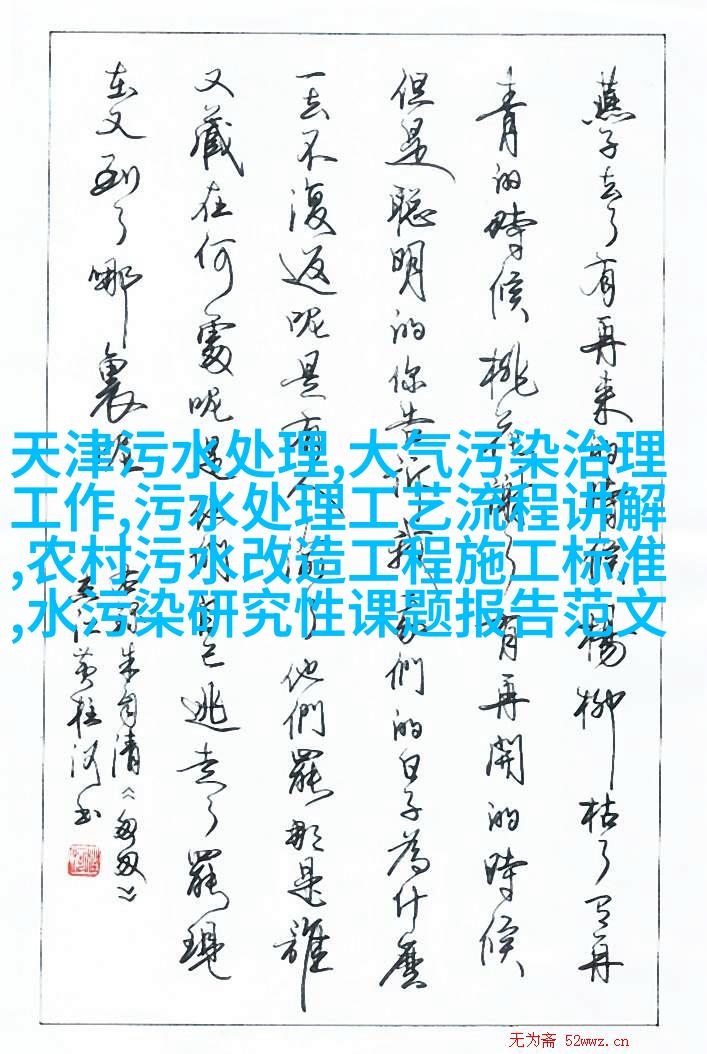 燕子去了有再来的時候楊柳枯了有再
青的時候桃花謝了有再開的時候
但是聪明的你告訴我我們的日子為什麼
一去不復返呢是有人偷了他們罷那是誰
又藏在何處呢是他們自己逃走了罷現
在又到了哪裏呢
右録朱自清《匆匆》
黄柱河书
天津污水处理,大气污染治理
工作,污水处理工艺流程讲解
,农村污水改造工程施工标准
,水污染研究性课题报告范文
无为斋 52wwz.cn